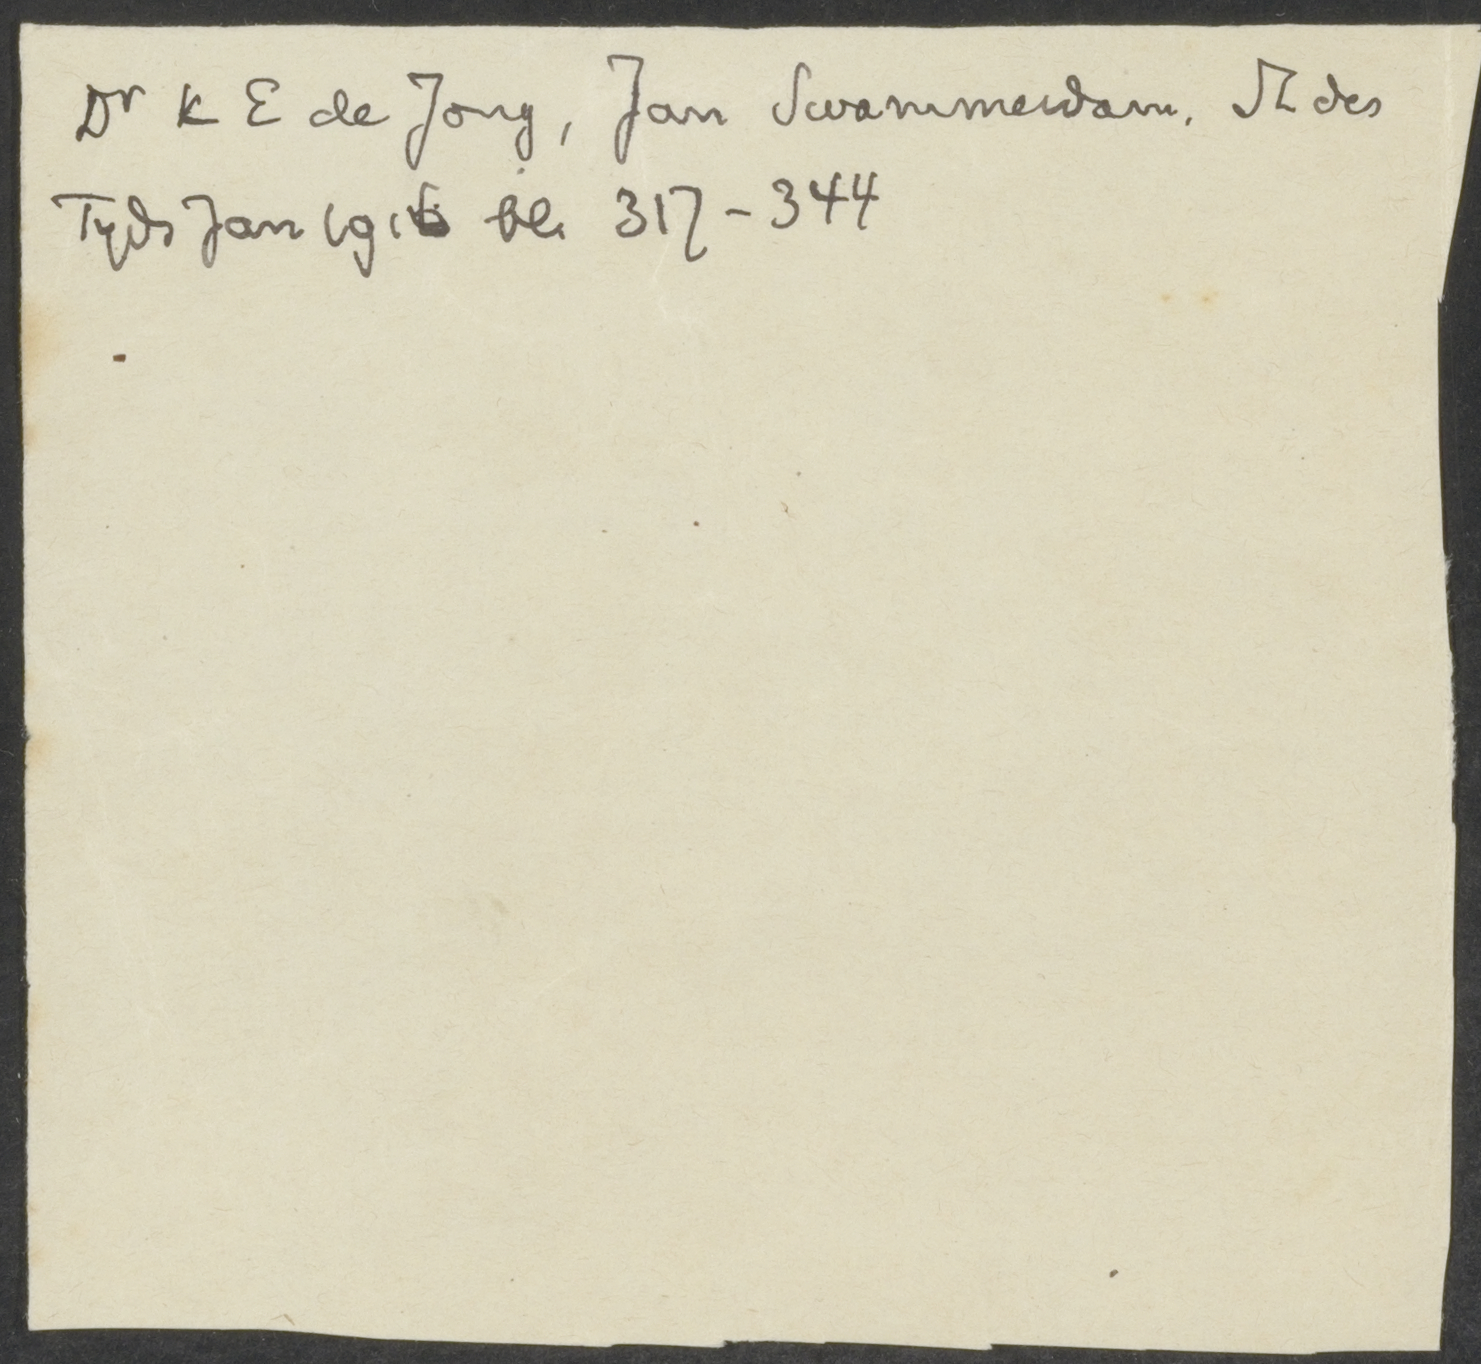 Dr K E de Jong, Jan Swammerdam. St des
Tyds Jan 1916 bl. 317-344